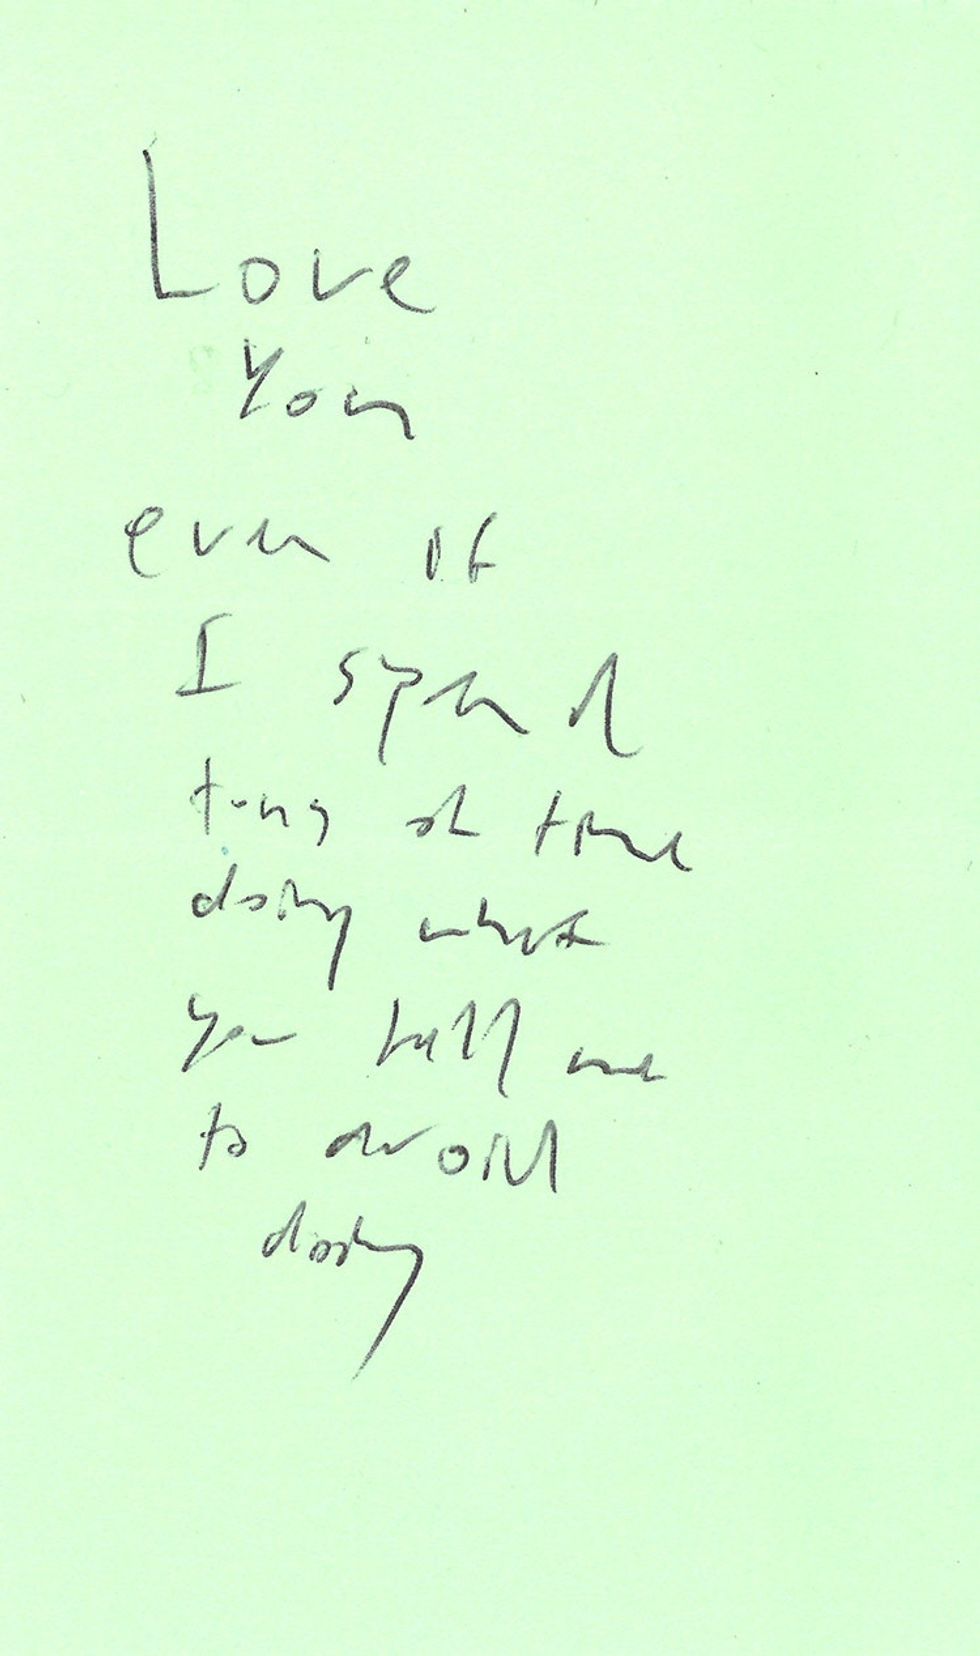 Love
You
even if
I spend
tons of time
doing what
you tell me
to avoid
doing